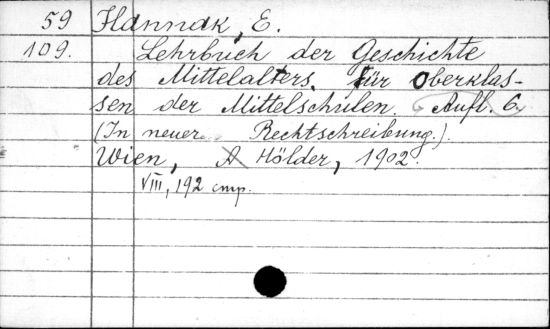 59 Hannak, E.
109. Lehrbuch der Geschichte
des Mittelalters. Für Oberklas-
sen der Mittelschulen. Aufl. 6.
(In neuer Rechtschreibung.).
Wien, A Hölder, 1902.
VIII, 192 стр.